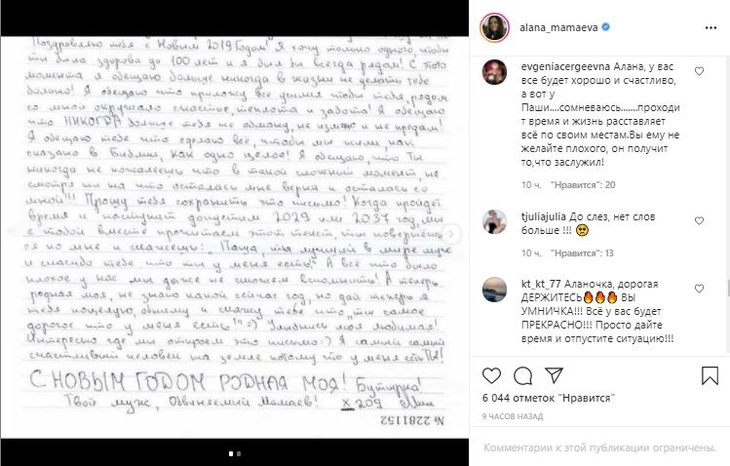 Поздравляю тебя с Новым 2019 Годом! Я хочу только одного, чтобы
ты была здорова до 100 лет и я был бы всегда рядом! С этого
момента я обещаю больше никогда в жизни не делать тебе
больно! Я обещаю что приложу все усилия чтобы тебя, рядом
со мной окружало счастье, теплота и забота! Я обещаю
что НИКОГДА больше тебя не обману, не изменю и не предам!
Я обещаю тебе что сделаю всё, чтобы мы жили как
сказано в Библии, как одно целое! Я обещаю, что Ты
никогда не пожалеешь что в такой сложный момент, не
смотря ни на что осталась мне верна и осталась со
мной!!! Прошу тебя сохранить это письмо! Когда пройдёт
время и наступит допустим 2029 или 2037 год, мы
с тобой вместе прочитаем этот текст, ты повернёшь
ся ко мне и скажешь: "Паша, ты лучший в мире муж
и спасибо тебе что ты у меня есть!" А всё что было
плохое у нас мы даже не сможем вспомнить! А теперь
родная моя, не знаю какой сейчас год, но дай теперь я
тебя поцелую, обниму и скажу тебе что "ты самое
дорогое что у меня есть!" :) Улыбнись моя любимая!
Интересно где мы откроем это письмо :) Я самый самый
счастливый человек на земле потому что у меня есть ТЫ!
С НОВЫМ ГОДОМ РОДНАЯ МОЯ! Бутырка!
Твой муж, Обвиняемый Мамаев! х 209
№ 2281152
alana_mamaeva
evgeniacergeevna Алана, у вас
все будет хорошо и счастливо,
а вот у
Паши....сомневаюсь.......проходи
т время и жизнь расставляет
всё по своим местам.Вы ему не
желайте плохого, он получит
то,что заслужил!
10 ч. "Нравится": 20
tjuliajulia До слез, нет слов
больше !!! 🥺
10 ч. "Нравится": 13
kt_kt_77 Аланочка, дорогая
ДЕРЖИТЕСЬ🔥🔥🔥 ВЫ
УМНИЧКА!!! Всё у вас будет
ПРЕКРАСНО!!! Просто дайте
время и отпустите ситуацию!!!
6 044 отметок "Нравится"
9 ЧАСОВ НАЗАД
Комментарии к этой публикации ограничены.